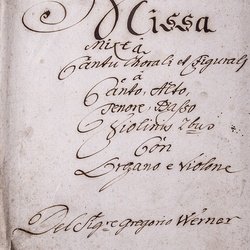 Missa
mixta
Cantu Chorali et figurali
à
Canto, Alto,
Tenore, Basso
Violinis 2bus
Con
Organo e Violone
Del Sigre Gregorio Werner